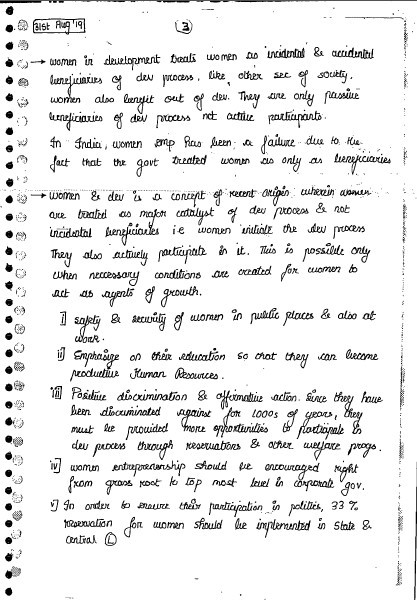 31st Aug '19
3
→ women in development treats women as incidental & accidental
beneficiaries of dev process, like other sec of society.
women also benefit out of dev. They are only passive
beneficiaries of dev process not active participants.
In India, women emp has been a failure due to the
fact that the govt treated women as only as beneficiaries
→ women & dev is a concept of recent origin wherein women
are treated as major catalyst of dev process & not
incidental beneficiaries i.e women initiate the dev process
They also actively participate in it. This is possible only
when necessary conditions are created for women to
act as agents of growth.
i] safety & security of women in public places & also at
work.
ii] Emphasize on their education so that they can become
productive Human Resources.
iii] Positive discrimination & affirmative action. Since they have
been discriminated against for 1000s of years, they
must be provided more opportunities to participate in
dev process through reservations & other welfare progs.
iv] women entrepreneurship should be encouraged right
from grass root to top most level in corporate gov.
v] In order to ensure their participation in politics, 33%
reservation for women should be implemented in State &
Central (L)